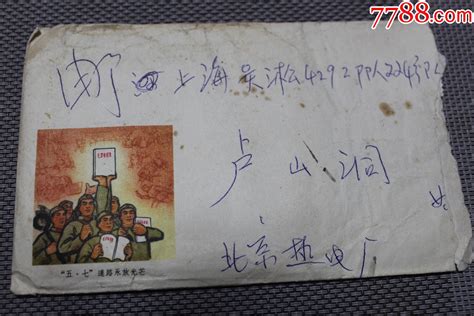 7788.com
邮 上海吴淞4292部队224部队
卢山洞
北京热电厂
"五·七"道路永放光芒